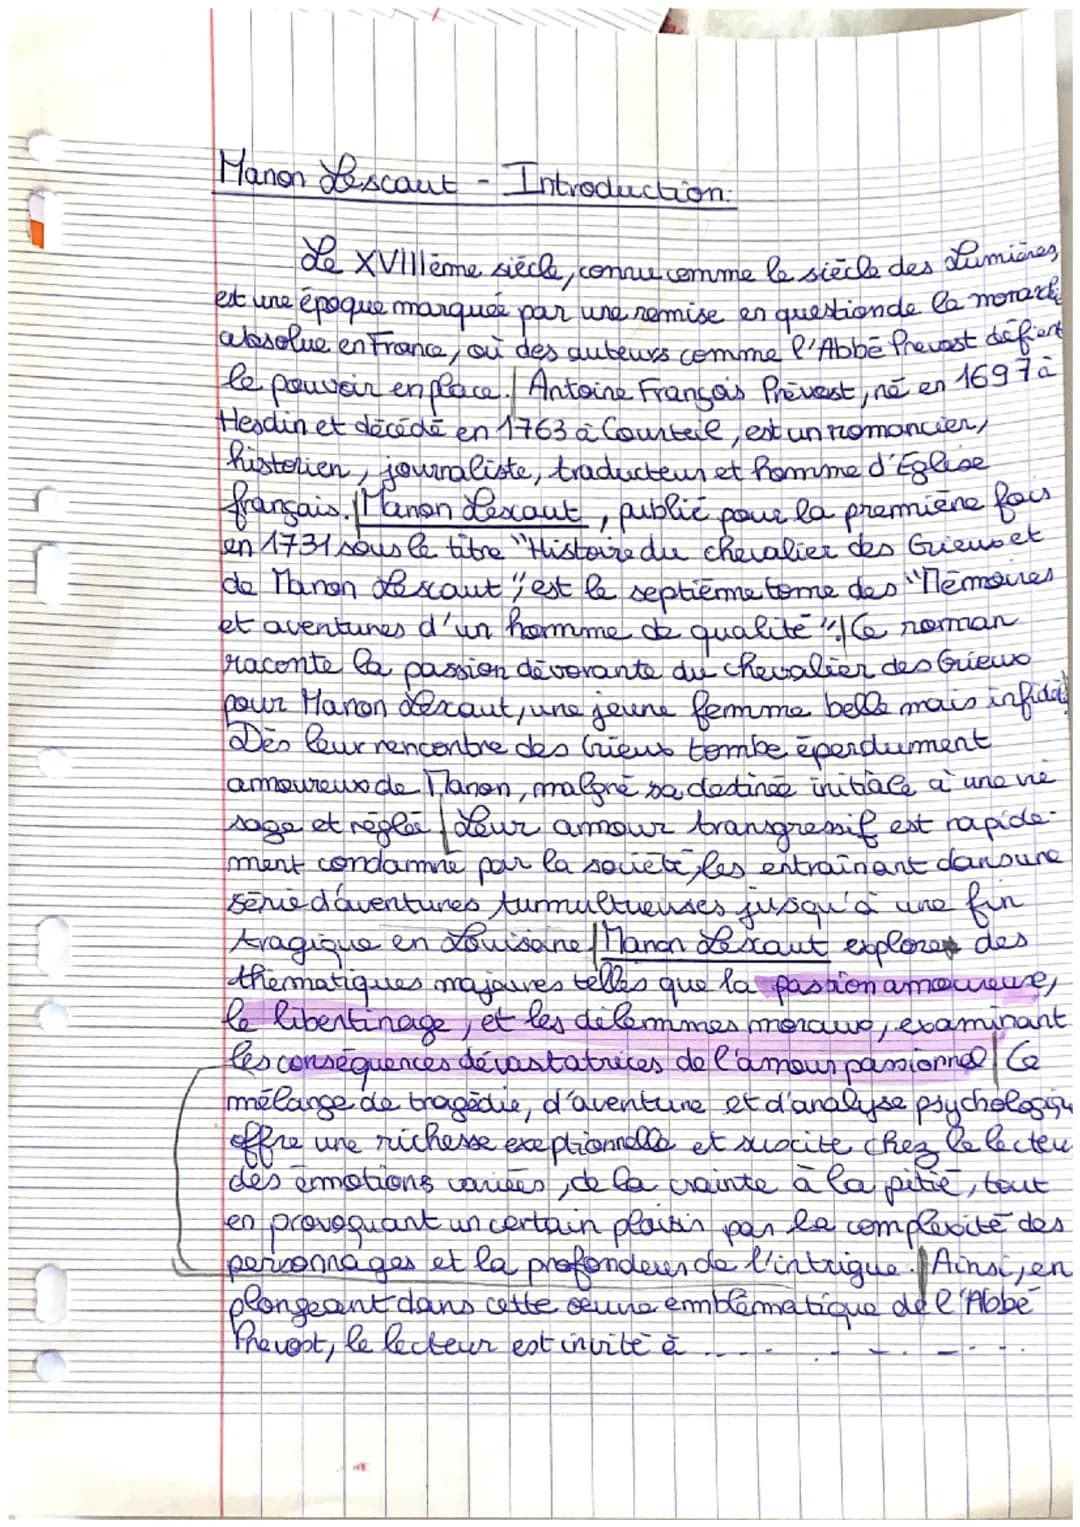 Manon Lescaut - Introduction.
Le XVIIIème siècle, connu comme le siècle des Lumières,
est une époque marquée par une remise en question de la monarchi
absolue en France, où des auteurs comme l'Abbé Prevost défient
le pouvoir en place. | Antoine François Prévost, né en 1697 à
Hesdin et décédé en 1763 à Courteil, est un romancier,
historien, journaliste, traducteur et homme d'Eglise
français. | Manon Lescaut, publié pour la première fois
en 1731 sous le titre "Histoire du chevalier des Grieux et
de Manon Lescaut", est le septième tome des "Mémoires
et aventures d'un homme de qualité". | Ce roman
raconte la passion dévorante du chevalier des Grieux
pour Manon Lescaut, une jeune femme belle mais infidèl
Dès leur rencontre des Grieux tombe éperdument
amoureux de Manon, malgré sa destinée initiale à une vie
sage et réglée | Leur amour transgressif est rapide-
ment condamné par la société, les entraînant dans une
série d'aventures tumultueuses jusqu'à une fin
tragique en Louisiane | Manon Lescaut explore des
thématiques majeures telles que la passion amoureuse,
le libertinage, et les dilemmes moraux, examinant
les conséquences dévastatrices de l'amour passionnel | Ce
mélange de tragédie, d'aventure et d'analyse psychologiqu
offre une richesse exeptionnelle et suscite chez le lecteu
des émotions variées, de la crainte à la pitié, tout
en provoquant un certain plaisir par la complexité des
personnages et la profondeur de l'intrigue. | Ainsi, en
plongeant dans cette oeuvre emblématique de l'Abbé
Prevost, le lecteur est invité à ... - . - . - . - . .